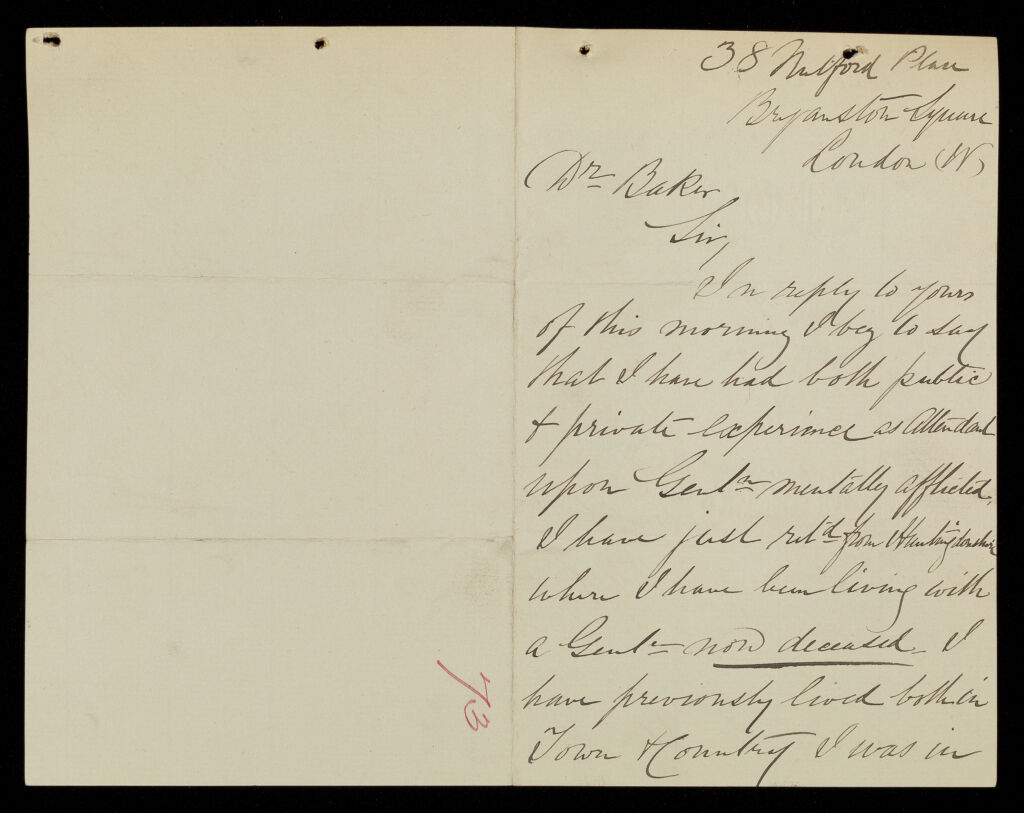 38 Nutford Place
Bryanston Square
London (W)
Dr Baker
Sir,
In reply to yours
of this morning I beg to say
that I have had both public
& private experience as Attendant
upon Gentn mentally afflicted.
I have just retd from Huntingdonshire
where I have been living with
a Gentn now deceased – I
have previously lived both in
Town & Country I was in
73